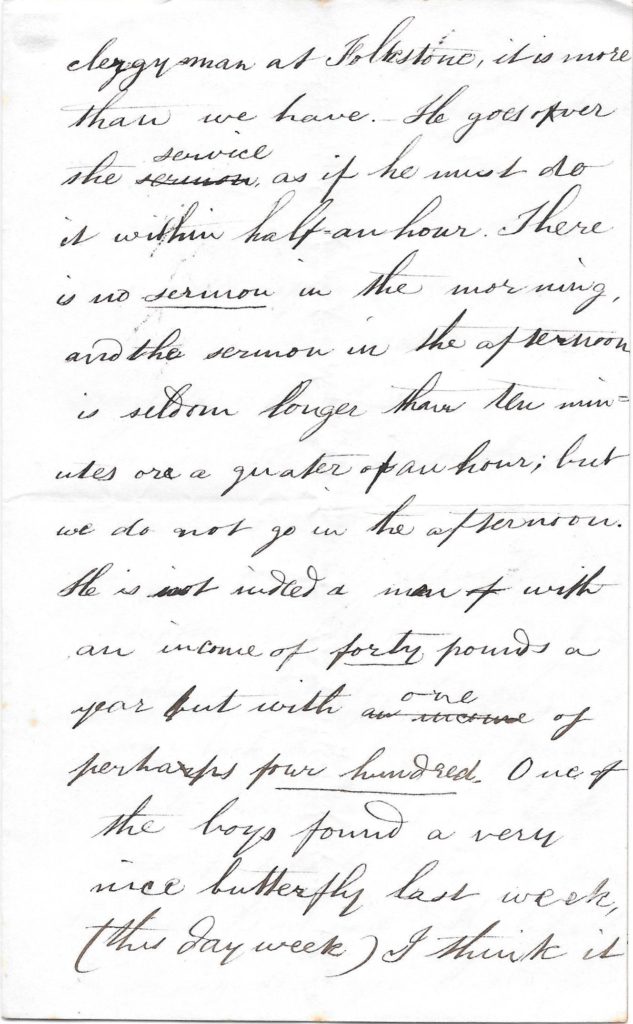 clergyman at Folkstone, it is more
than we have. He goes over
service
the sermon, as if he must do
it within half-an hour. There
is no sermon in the morning,
and the sermon in the afternoon
is seldom longer than ten min=
utes or a quater of an hour; but
we do not go in the afternoon.
He is not indeed a man with
an income of forty pounds a
one
year but with an income of
perhaps four hundred. One of
the boys found a very
nice butterfly last week,
(this day week) I think it